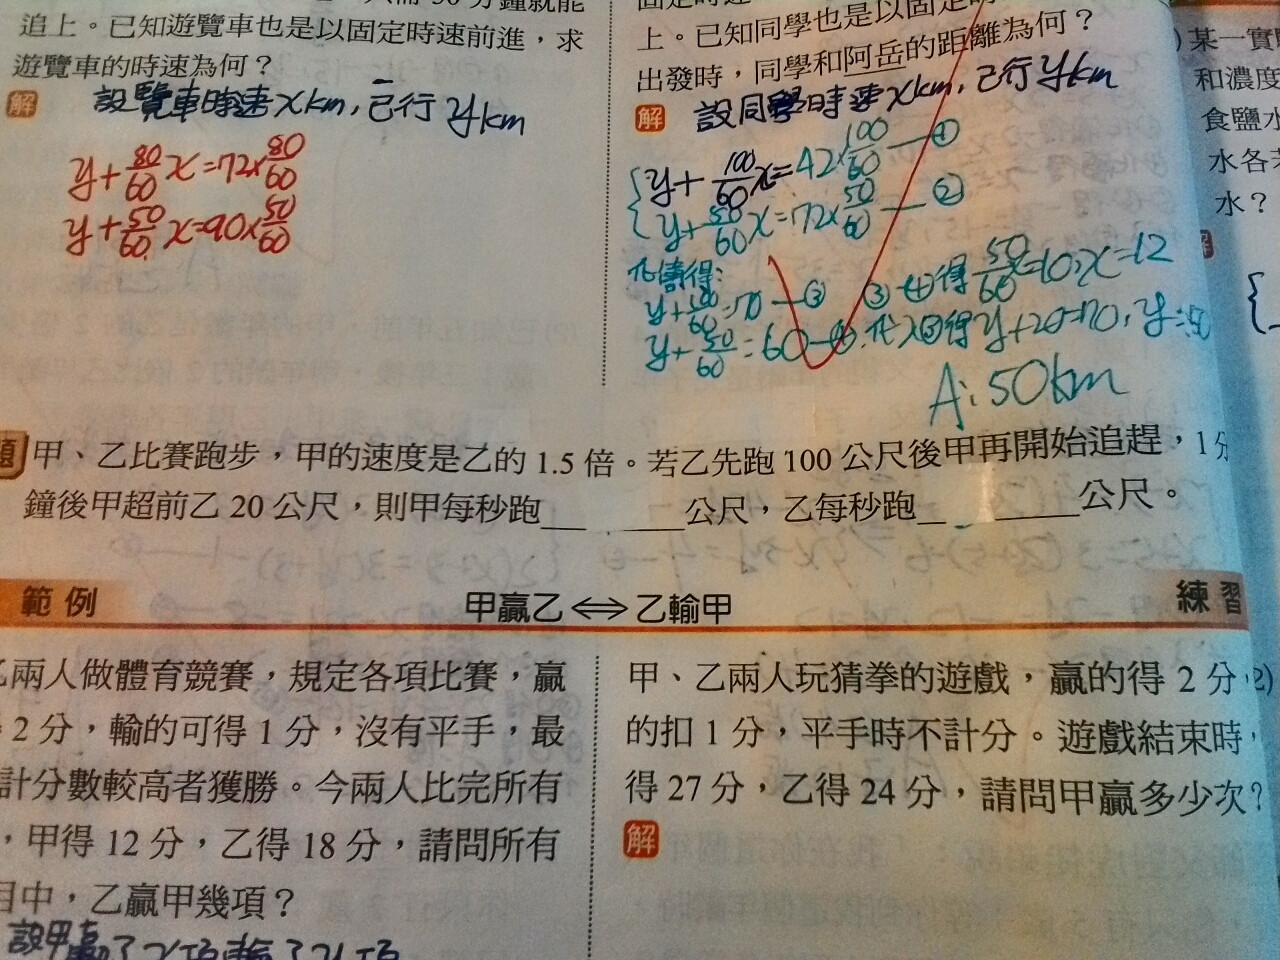 追上。已知遊覽車也是以固定時速前進，求
遊覽車的時速為何？
解 設覽車時速xkm，已行ykm
y+80/60x=72x80/60
y+50/60x=90x50/60
上。已知同學也是以固定時
出發時，同學和阿岳的距離為何？
解 設同學時速xkm，已行ykm
y+100/60x=42x100/60—①
y+50/60x=72x50/60—②
化簡得:
y+100/60=70—③
y+50/60=60—④
③-④得50/60x=10,x=12
代入③得y+20=70,y=50
A:50km
題 甲、乙比賽跑步，甲的速度是乙的 1.5 倍。若乙先跑 100 公尺後甲再開始追趕，1 分
鐘後甲超前乙 20 公尺，則甲每秒跑______公尺，乙每秒跑______公尺。
範例 甲贏乙⇔乙輸甲 練習
乙兩人做體育競賽，規定各項比賽，贏
2 分，輸的可得 1 分，沒有平手，最
計分數較高者獲勝。今兩人比完所有
，甲得 12 分，乙得 18 分，請問所有
目中，乙贏甲幾項？
設甲贏了x項輸了y項
甲、乙兩人玩猜拳的遊戲，贏的得 2 分，
的扣 1 分，平手時不計分。遊戲結束時，
得 27 分，乙得 24 分，請問甲贏多少次？
解
某一實
和濃度
食鹽水
水各
水？
2)